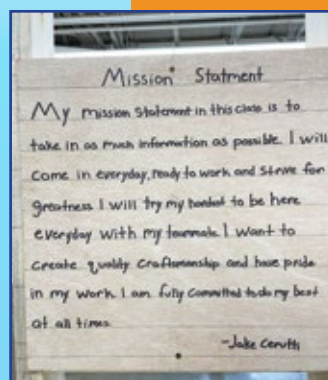 Mission Statment
My mission statement in this class is to
take in as much information as possible. I will
come in everyday, ready to work and strive for
greatness I will try my hardest to be here
everyday with my teammate I want to
create quality craftsmanship and have pride
in my work I am fully committed to do my best
at all times
-Jake Cerutti